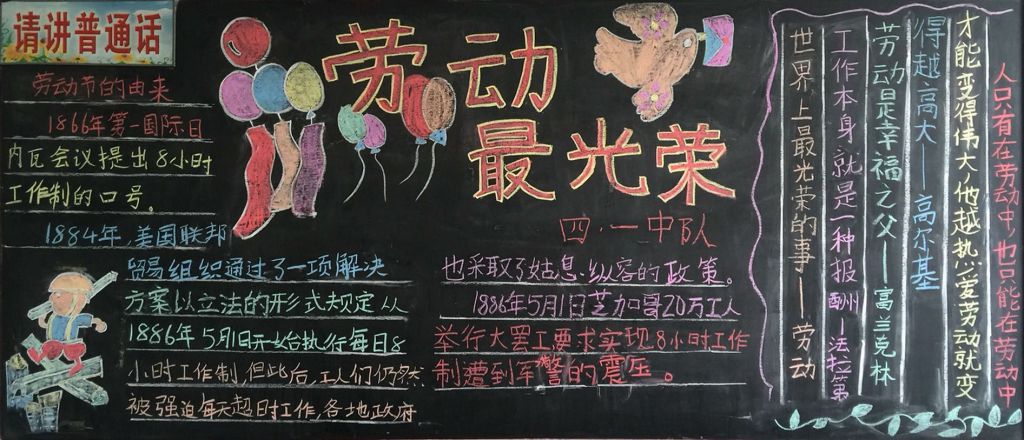 请讲普通话
劳动
最光荣
四·一中队
劳动节的由来
1866年第一国际日
内瓦会议提出8小时
工作制的口号。
1884年,美国联邦
贸易组织通过了一项解决
方案以立法的形式规定从
1886年5月1日开始执行每日8
小时工作制,但此后,工人们仍然
被强迫每天超时工作,各地政府
也采取了姑息、纵容的政策。
1886年5月1日芝加哥20万工人
举行大罢工要求实现8小时工作
制遭到军警的震压。
人只有在劳动中,也只能在劳动中
才能变得伟大,他越热爱劳动就变
得越高大——高尔基
劳动是幸福之父——富兰克林
工作本身就是一种报酬—法拉第
世界上最光荣的事——劳动